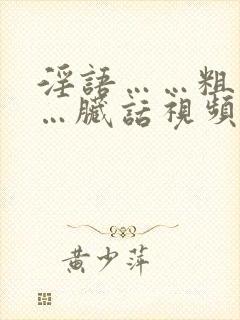 淫語……粗
…臟話視頻
黃少萍